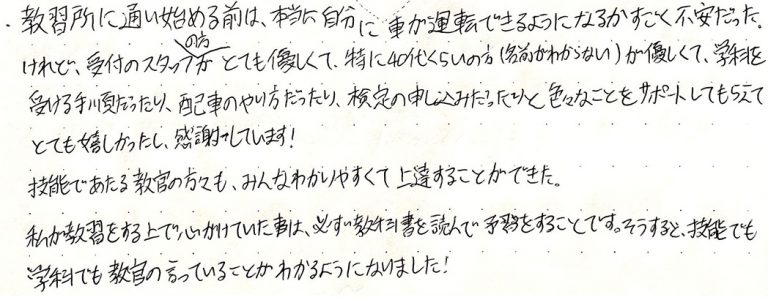 ・教習所に通い始める前は、本当に自分に車が運転できるようになるかすごく不安だった。
けれど、受付のスタッフの方がとても優しくて、特に40代くらいの方(名前がわからない)が優しくて、学科を
受ける手順だったり、配車のやり方だったり、検定の申し込みだったりと色々なことをサポートしてもらえて
とても嬉しかったし、感謝しています!
技能であたる教官の方々も、みんなわかりやすくて上達することができた。
私が教習をする上で心がけていた事は、必ず教科書を読んで予習をすることです。そうすると、技能でも
学科でも教官の言っていることがわかるようになりました!